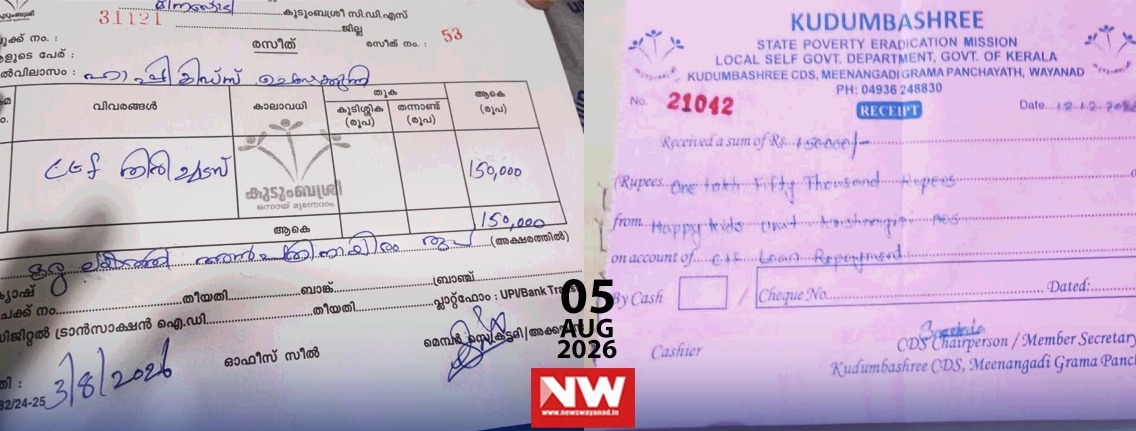 മീനങ്ങാടി കുടുംബശ്രീ സി.ഡി.എസ്
31121 ജില്ല
ക്ക് നം. :
രസീത്
രസീത് നം. : 53
ളുടെ പേര് :
ൽവിലാസം : ഹാപ്പി കിഡ്സ്
വിവരങ്ങൾ
കാലാവധി
തുക
കുടിശ്ശിക (രൂപ)
തന്നാണ്ട് (രൂപ)
ആകെ (രൂപ)
CEF തിരിച്ചടവ്
150,000
കുടുംബശ്രീ
ഒന്നായ് മുന്നേറാം
ആകെ
150,000
ഒരു ലക്ഷത്തി അൻപതിനായിരം രൂപ (അക്ഷരത്തിൽ)
ക്യാഷ്
ചെക്ക് നം. തീയതി ബാങ്ക് ബ്രാഞ്ച്
ഡിജിറ്റൽ ട്രാൻസാക്ഷൻ ഐ.ഡി. തീയതി പ്ലാറ്റ്ഫോം : UPI/Bank Trans
ഓഫീസ് സീൽ
മെമ്പർ സെക്രട്ടറി/അക്കൗ
3/8/2026
32/24-25
KUDUMBASHREE
STATE POVERTY ERADICATION MISSION
LOCAL SELF GOVT. DEPARTMENT, GOVT. OF KERALA
KUDUMBASHREE CDS, MEENANGADI GRAMA PANCHAYATH, WAYANAD
PH: 04936 248830
No. 21042
RECEIPT
Date
Received a sum of Rs. 150000/-
(Rupees One lakh Fifty Thousand Rupees
from Happy kids unit
on account of Loan Repayment
By Cash
Cheque No. Dated:
Cashier
CDS Chairperson / Member Secretary
Kudumbashree CDS, Meenangadi Grama Panch
05
AUG
2026
NW
www.newswayanad.in